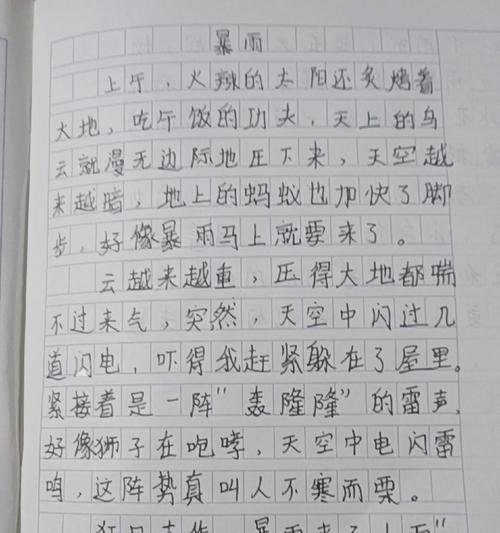 暴雨
上午，火辣的太阳还炙烤着
大地，吃午饭的功夫，天上的乌
云就漫无边际地压下来，天空越
来越暗，地上的蚂蚁也加快了脚
步，好像暴雨马上就要来了。
云越来越重，压得大地都喘
不过来气，突然，天空中闪过几
道闪电，吓得我赶紧躲在了屋里。
紧接着是一阵"轰隆隆"的雷声，
好像狮子在咆哮，天空中电闪雷
鸣，这阵势真叫人不寒而栗。